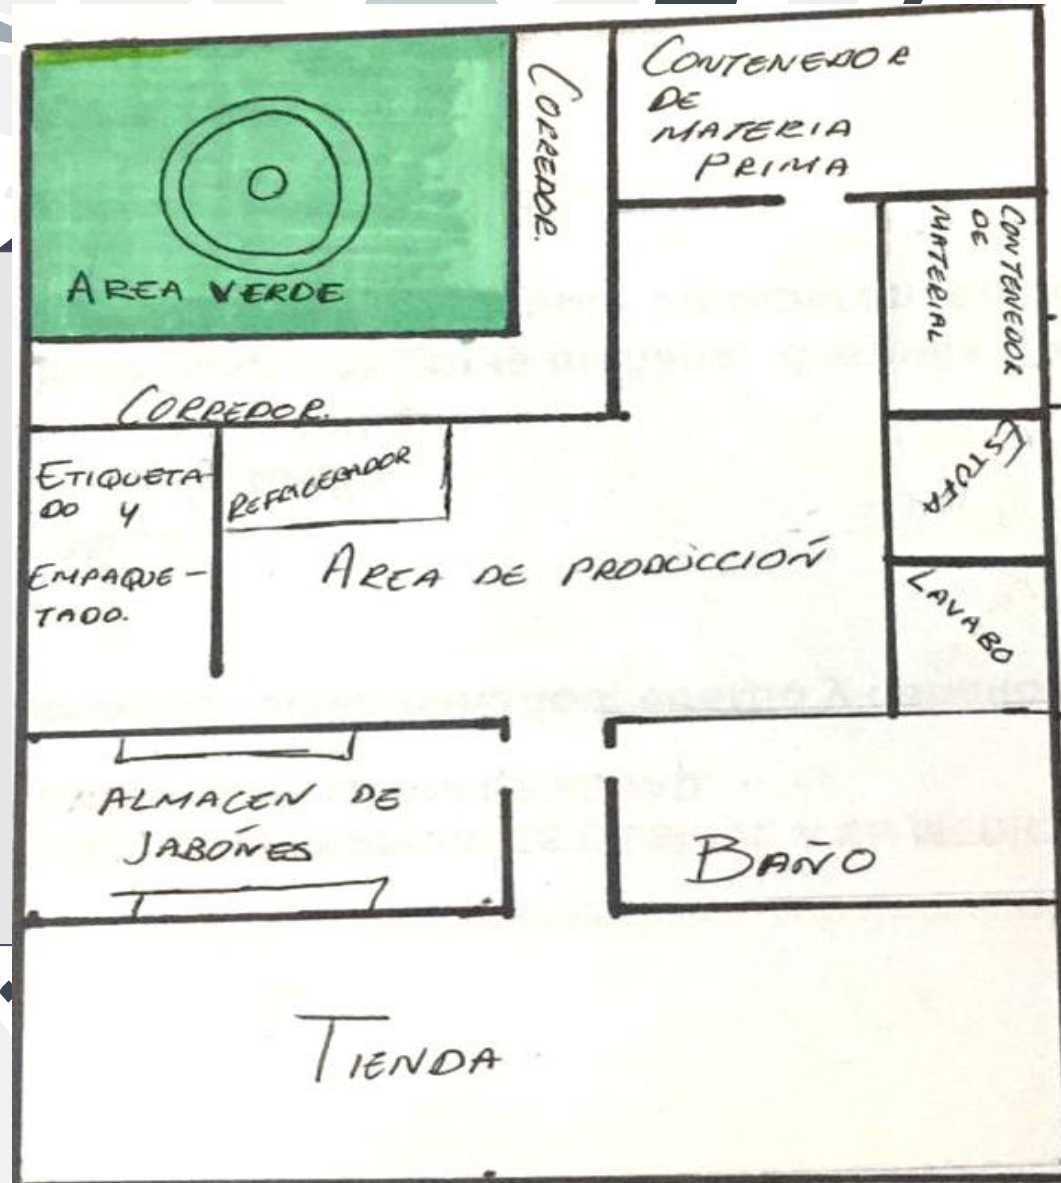 CORREDOR.
CONTENEDOR
DE
MATERIA
PRIMA
AREA VERDE
CONTENEDOR
DE
MATERIAL
CORREDOR.
ETIQUETA-
DO Y
EMPAQUE-
TADO.
REFRIGERADOR
ESTUFA
AREA DE PRODUCCIÓN
LAVABO
ALMACEN DE
JABONES
BAÑO
TIENDA